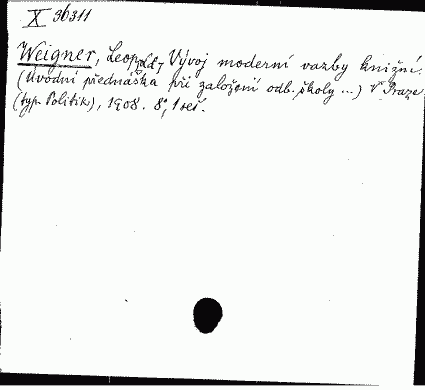 X 36311
Weigner, Leopold, Vývoj moderní vazby knižní.
(Úvodní přednáška při založení odb. školy ...) V Praze
(typ. Politik), 1908. 8°, 1 seš.